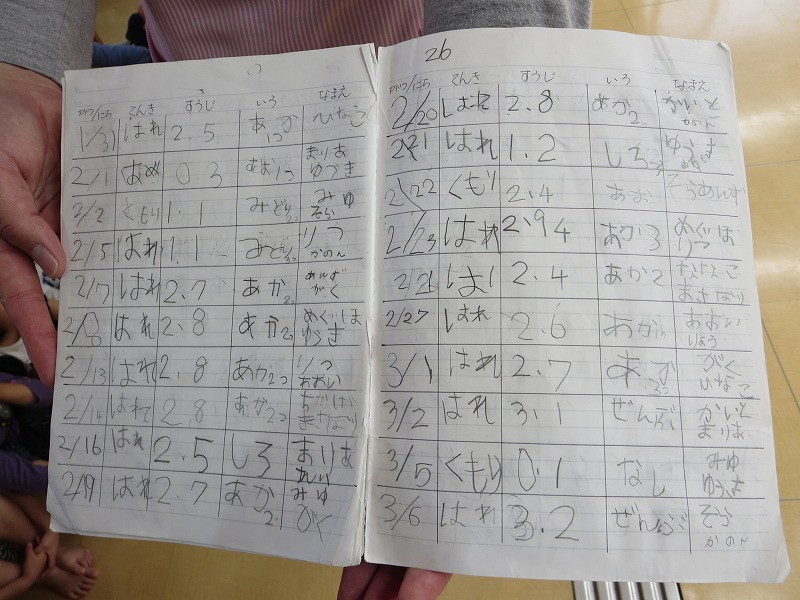 がつ/にち てんき すうじ いろ なまえ
1/31 はれ 2.5 あか1つ ひなこ
2/1 あめ 0.3 あお1つ まりあ
ゆづき
2/2 くもり 1.1 みどり みゆ
そら
2/5 はれ 1.1 みどり りつ
かのん
2/7 はれ 2.7 あか2 あんず
がく
はれ 2.8 あか2つ めぐ
2/13 はれ 2.8 あか2つ りつ
あおい
2/14 はれ 2.8 あか2つ
2/16 はれ 2.5 しろ まりあ
2/19 はれ 2.7 あか2 みゆ
がく
26
がつ/にち てんき すうじ いろ なまえ
2/20 はれ 2.8 あか2 かいと
かのん
2/21 はれ 1.2 しろ
2/22 くもり 2.4 あお そらあんず
2/23 はれ 2.94 あか
りつ
2/26 2.4 あか2
2/27 はれ 2.6 あか あおい
りょう
3/1 はれ 2.7 あか がく
ひなこ
3/2 はれ 3.1 ぜんぶ かいと
まりあ
3/5 くもり 0.1 なし みゆ
3/6 はれ 3.2 ぜんぶ そら
かのん